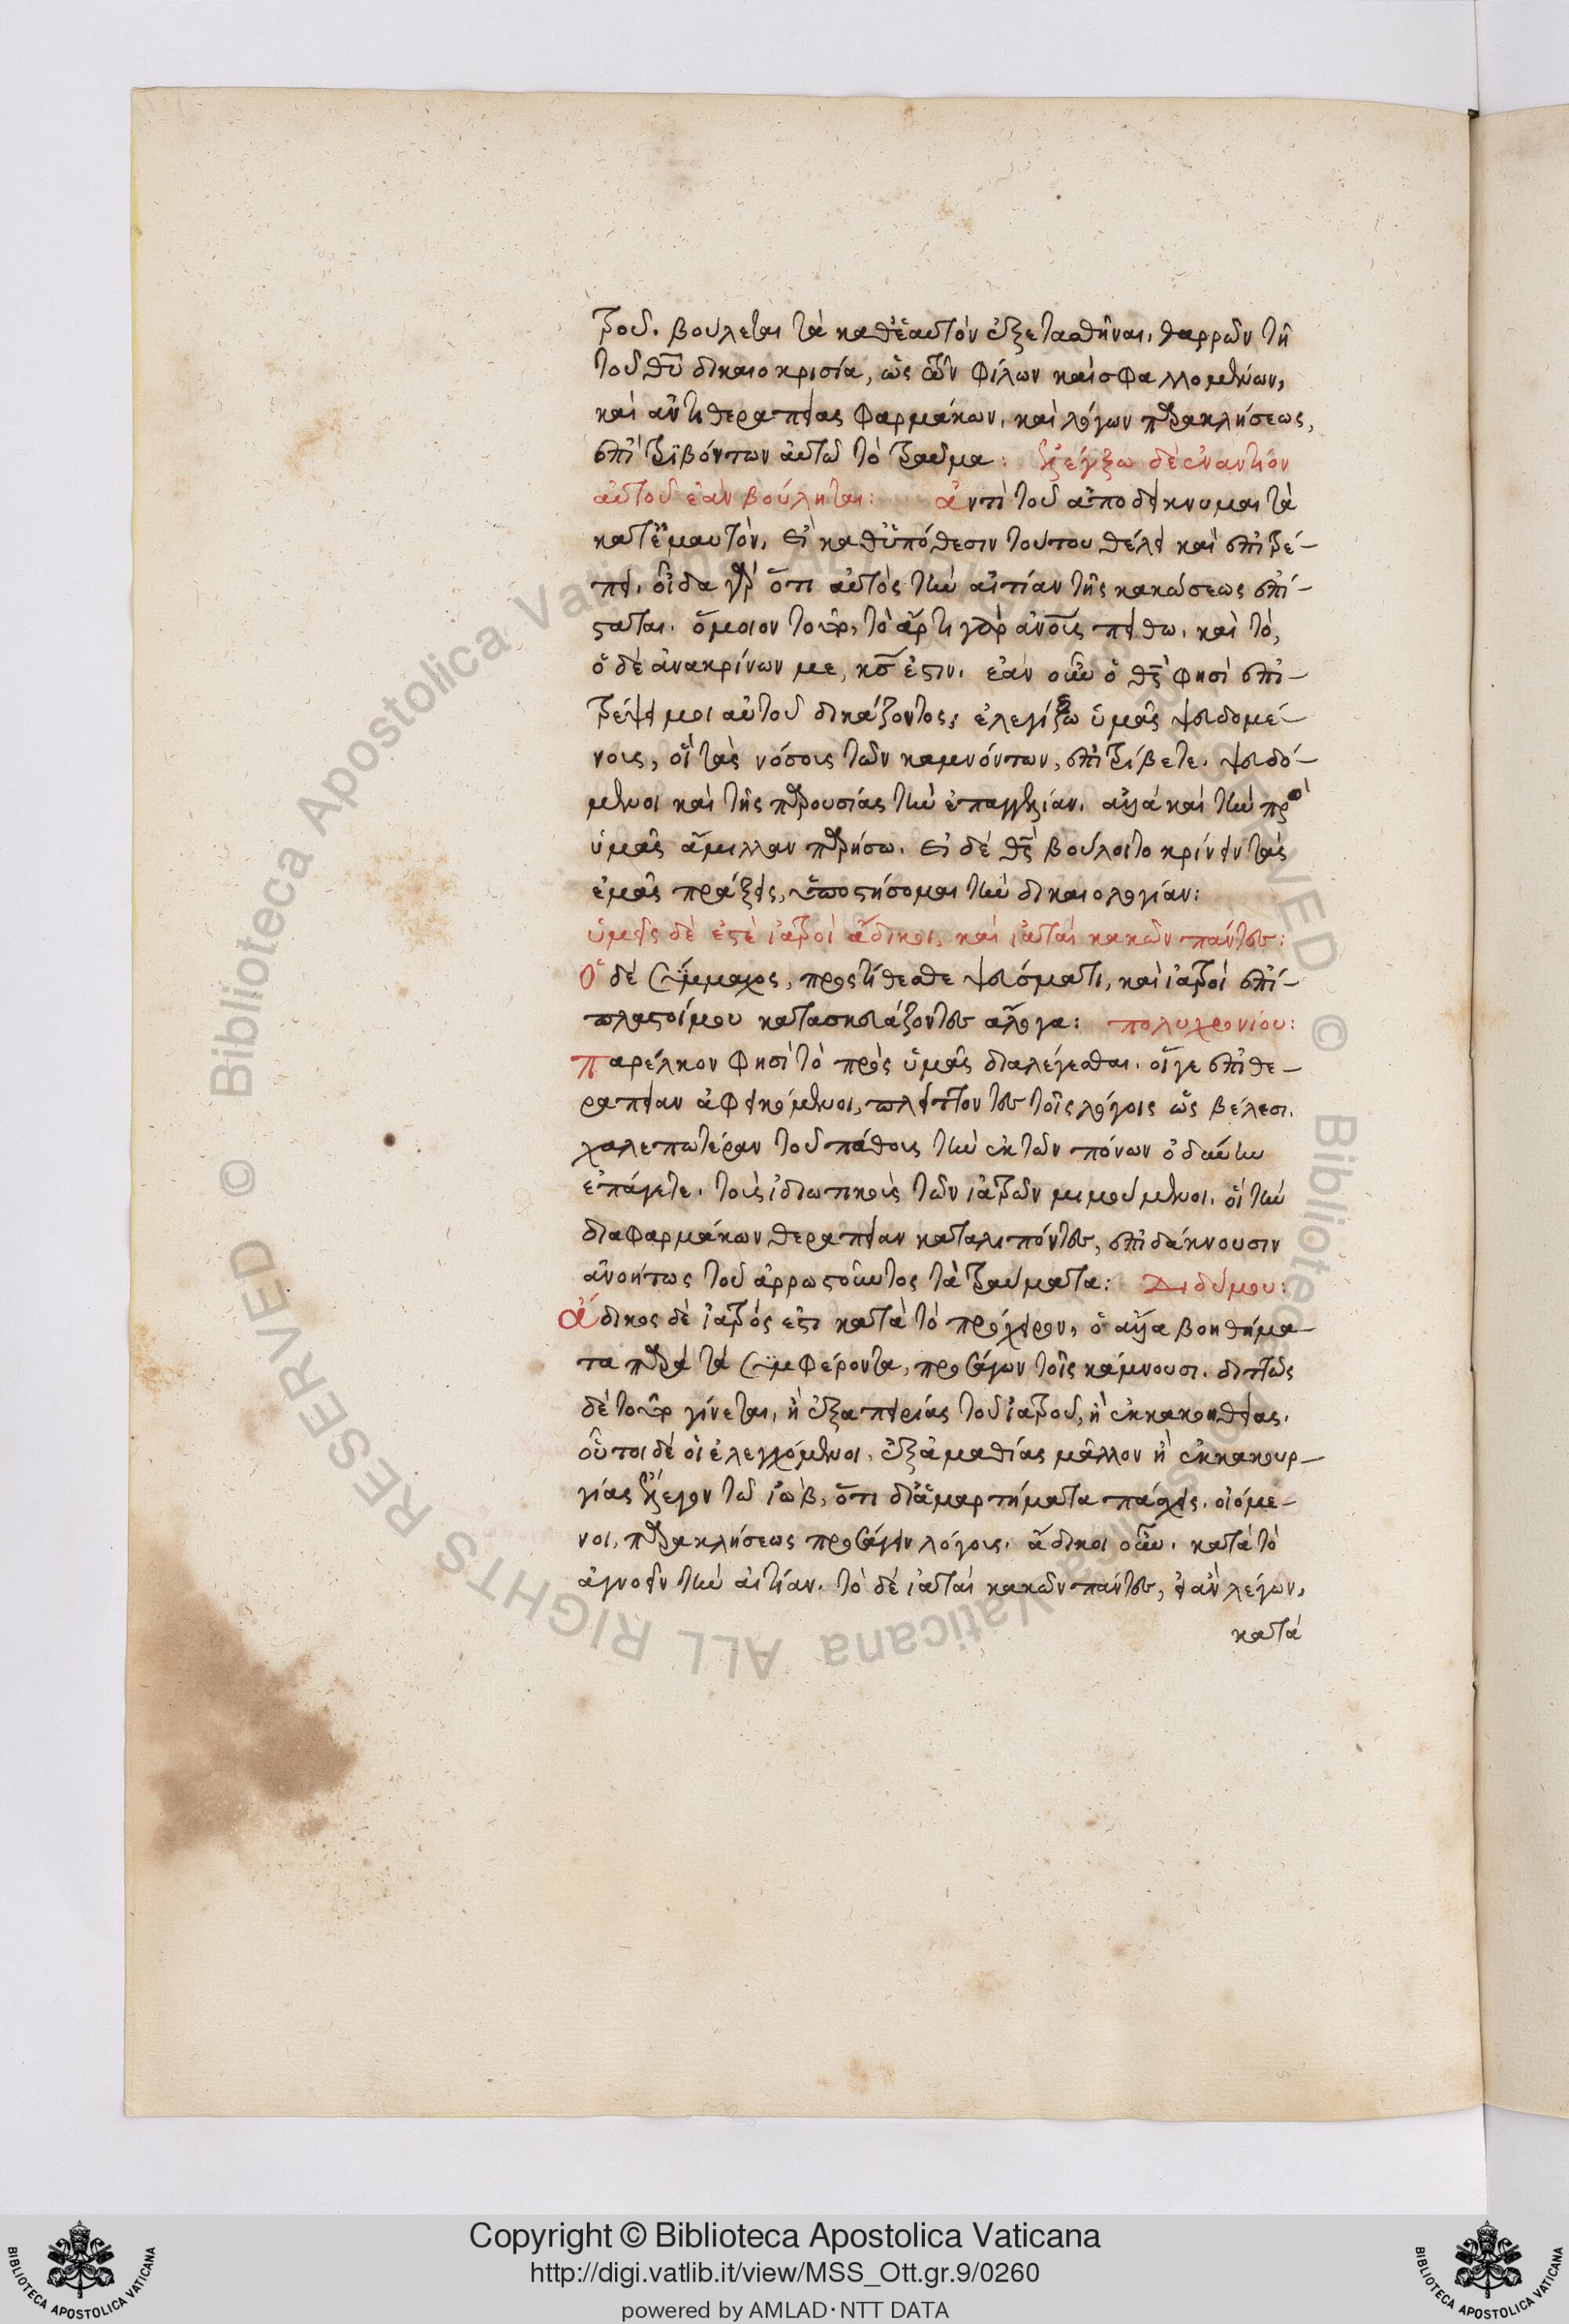 τροῦ. βούλεται τὰ καθ' ἑαυτὸν ἐξετασθῆναι, θαρρῶν τῇ
τοῦ θῡ δικαιοκρισία, ὡς τῶν φίλων καὶ σφαλλομένων,
καὶ ἀντὶ θεραπείας φαρμάκων, καὶ λόγων παρακλήσεως,
ἐπιτριβόντων αὐτῶ τὸ τραῦμα: ἐλέγξω δὲ ἐναντίον
αὐτοῦ ἐὰν βούληται: ἀντὶ τοῦ ἀποδείκνυμαι τὰ
κατ' ἐμαυτὸν, εἰ καθ' ὑπόθεσιν τούτου θέλει καὶ ἐπιτρέ-
πει. οἶδα γὰρ ὅτι αὐτὸς τὴν αἰτίαν τῆς κακώσεως ἐπί-
σταται. ὅμοιον τοῦτο, τὸ ἄρτι γὰρ ἀνοις πείθω. καὶ τὸ,
ὁ δὲ ἀνακρίνων με, κς ἐστιν. ἐὰν οὖν ὁ θς φησὶ ἐπι-
τρέψει μοι αὐτοῦ δικάζοντος, ἐλέγξω ὑμᾶς ψευδομέ-
νους, οἳ τὰς νόσους τῶν καμνόντων, ἐπιτρίβετε. ψευδό-
μενοι καὶ τῆς παρουσίας τὴν ἐπαγγελίαν. ἀλλὰ καὶ τὴν πρὸ
ὑμᾶς ἅμιλλαν παρήσω. εἰ δὲ θς βούλοιτο κρίνειν τὰς
ἐμὰς πράξεις, ὑποστήσομαι τὴν δικαιολογίαν:
ὑμεῖς δὲ ἐστὲ ἰατροὶ ἄδικοι, καὶ ἰαταὶ κακῶν πάντες:
Ὁ δὲ Σύμμαχος, προστίθεσθε ψεύσματι, καὶ ἰατροὶ ἐπί-
πλαστοί μου κατασκευάζοντες ἄλογα: πολυχρονίου:
Παρέλκον φησὶ τὸ πρὸς ὑμᾶς διαλέγεσθαι. οἵ γε ἐπὶ θε-
ραπείαν ἀφεικόμενοι, πλείττοντες τοῖς λόγοις ὡς βέλεσι.
χαλεπωτέραν τοῦ πάθους τὴν ἐκ τῶν πόνων ὀδύνην
ἐπάγετε. τοὺς ἰδιωτικοὺς τῶν ἰατρῶν μιμούμενοι. οἳ τὴν
διὰ φαρμάκων θεραπείαν καταλιπόντες, ἐπιδάκνουσιν
ἀνοήτως τοῦ ἀρρωστοῦντος τὰ τραύματα: Διδύμου:
Ἄδικος δὲ ἰατρός ἐστι κατὰ τὸ πρόχειρον, ὁ ἄλλα βοηθήμα-
τα παρὰ τὰ συμφέροντα, προσάγων τοῖς κάμνουσι. διττῶς
δὲ τοῦτο γίνεται, ἢ ἐξ ἀπειρίας τοῦ ἰατροῦ, ἢ ἐκ κακοηθείας.
οὗτοι δὲ οἱ ἐλεγχόμενοι, ἐξ ἀμαθίας μᾶλλον ἢ ἐκ κακουρ-
γίας ἔλεγον τῶ ἰὼβ, ὅτι δι' ἁμαρτήματα πάσχεις. οἰόμε-
νοι, παρακλήσεως προσάγειν λόγους. ἄδικοι οὖν. κατὰ τὸ
ἀγνοεῖν τὴν αἰτίαν. τὸ δὲ ἰαταὶ κακῶν πάντες, εἴη ἂν λέγων,
κατὰ
Copyright © Biblioteca Apostolica Vaticana
http://digi.vatlib.it/view/MSS_Ott.gr.9/0260
powered by AMLAD·NTT DATA